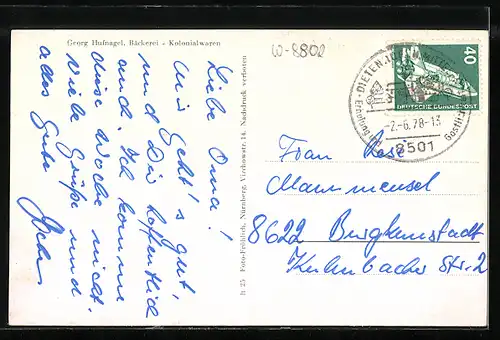 Georg Hufnagel, Bäckerei - Kolonialwaren
W-8802
Liebe Oma!
Mir geht's gut,
und Dir hoffentlich
auch. Ich komme
diese Woche nicht.
Viele Grüße und
alles Gute
lt 25 Foto-Fröhlich, Nürnberg, Virchowstr. 14. Nachdruck verboten
DIETEN
Erholung
8501
-2.-6.78-13
40
DEUTSCHE BUNDESPOST
Frau
Rese
Mammensel
8622 Burgkunstadt
Kulmbacher Str. 2